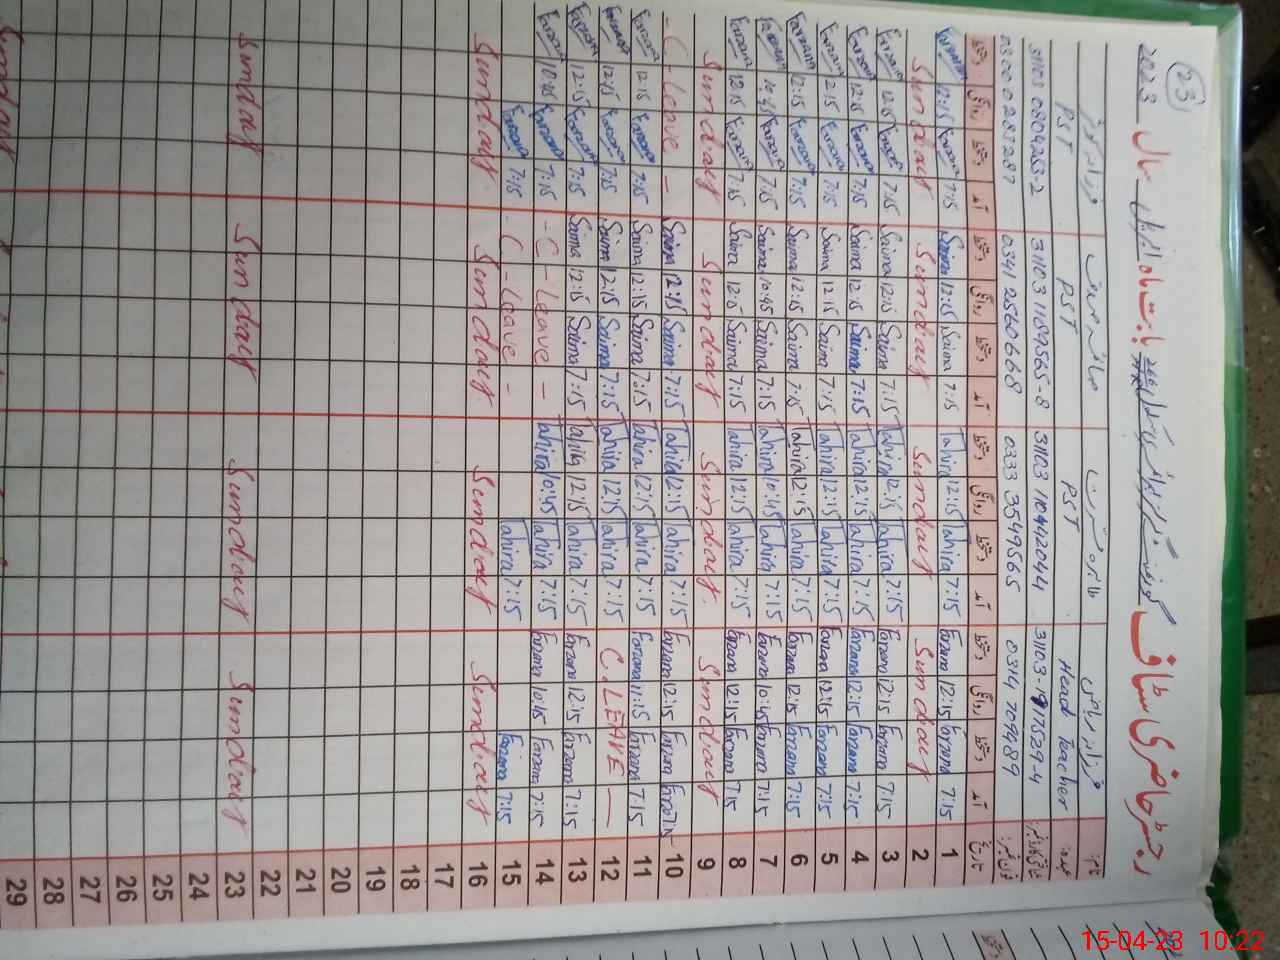 23
رجسٹر حاضری سٹاف گورنمنٹ گرلز پرائمری سکول بابت ماہ اپریل سال 2023
نام
عہدہ Head Teacher PST PST PST
31103-1917529-4 31103 11042044 31103 1189565-8 31103 0804253-2
فون نمبر 0314 709489 0333 3549565 0341 2560668 0300 0283287
تاریخ آمد دستخط روانگی دستخط آمد دستخط روانگی دستخط آمد دستخط روانگی دستخط آمد دستخط روانگی دستخط
1 7:15 Farzana 12:15 Farzana 7:15 Tahira 12:15 Tahira 7:15 Saima 12:15 Saima 7:15 Farzana 12:15 Farzana
2 Sunday Sunday Sunday Sunday
3 7:15 Farzana 12:15 Farzana 7:15 Tahira 12:15 Tahira 7:15 Saima 12:15 Saima 7:15 Farzana 12:15 Farzana
4 7:15 Farzana 12:15 Farzana 7:15 Tahira 12:15 Tahira 7:15 Saima 12:15 Saima 7:15 Farzana 12:15 Farzana
5 7:15 Farzana 12:15 Farzana 7:15 Tahira 12:15 Tahira 7:15 Saima 12:15 Saima 7:15 Farzana 12:15 Farzana
6 7:15 Farzana 12:15 Farzana 7:15 Tahira 12:15 Tahira 7:15 Saima 12:15 Saima 7:15 Farzana 12:15 Farzana
7 7:15 Farzana 10:45 Farzana 7:15 Tahira 10:45 Tahira 7:15 Saima 10:45 Saima 7:15 Farzana 10:45 Farzana
8 7:15 Farzana 12:15 Farzana 7:15 Tahira 12:15 Tahira 7:15 Saima 12:15 Saima 7:15 Farzana 12:15 Farzana
9 Sunday Sunday Sunday Sunday
10 Farzana 12:15 Farzana 7:15 Tahira 12:15 Tahira 7:15 Saima 12:15 Saima - C - Leave -
11 7:15 Farzana 11:15 Farzana 7:15 Tahira 12:15 Tahira 7:15 Saima 12:15 Saima 7:15 Farzana 12:15 Farzana
12 C.LEAVE — 7:15 Tahira 12:15 Tahira 7:15 Saima 12:15 Saima 7:15 Farzana 12:15 Farzana
13 7:15 Farzana 12:15 Farzana 7:15 Tahira 12:15 Tahira 7:15 Saima 12:15 Saima 7:15 Farzana 12:15 Farzana
14 7:15 Farzana 10:45 Farzana 7:15 Tahira 10:45 Tahira - C - Leave - 7:15 Farzana 10:45 Farzana
15 7:15 Farzana 7:15 Tahira - C - Leave - 7:15 Farzana
16 Sunday Sunday Sunday Sunday
17
18
19
20
21
22
23 Sunday Sunday Sunday Sunday
24
25
26
27
28
29
15-04-23 10:22